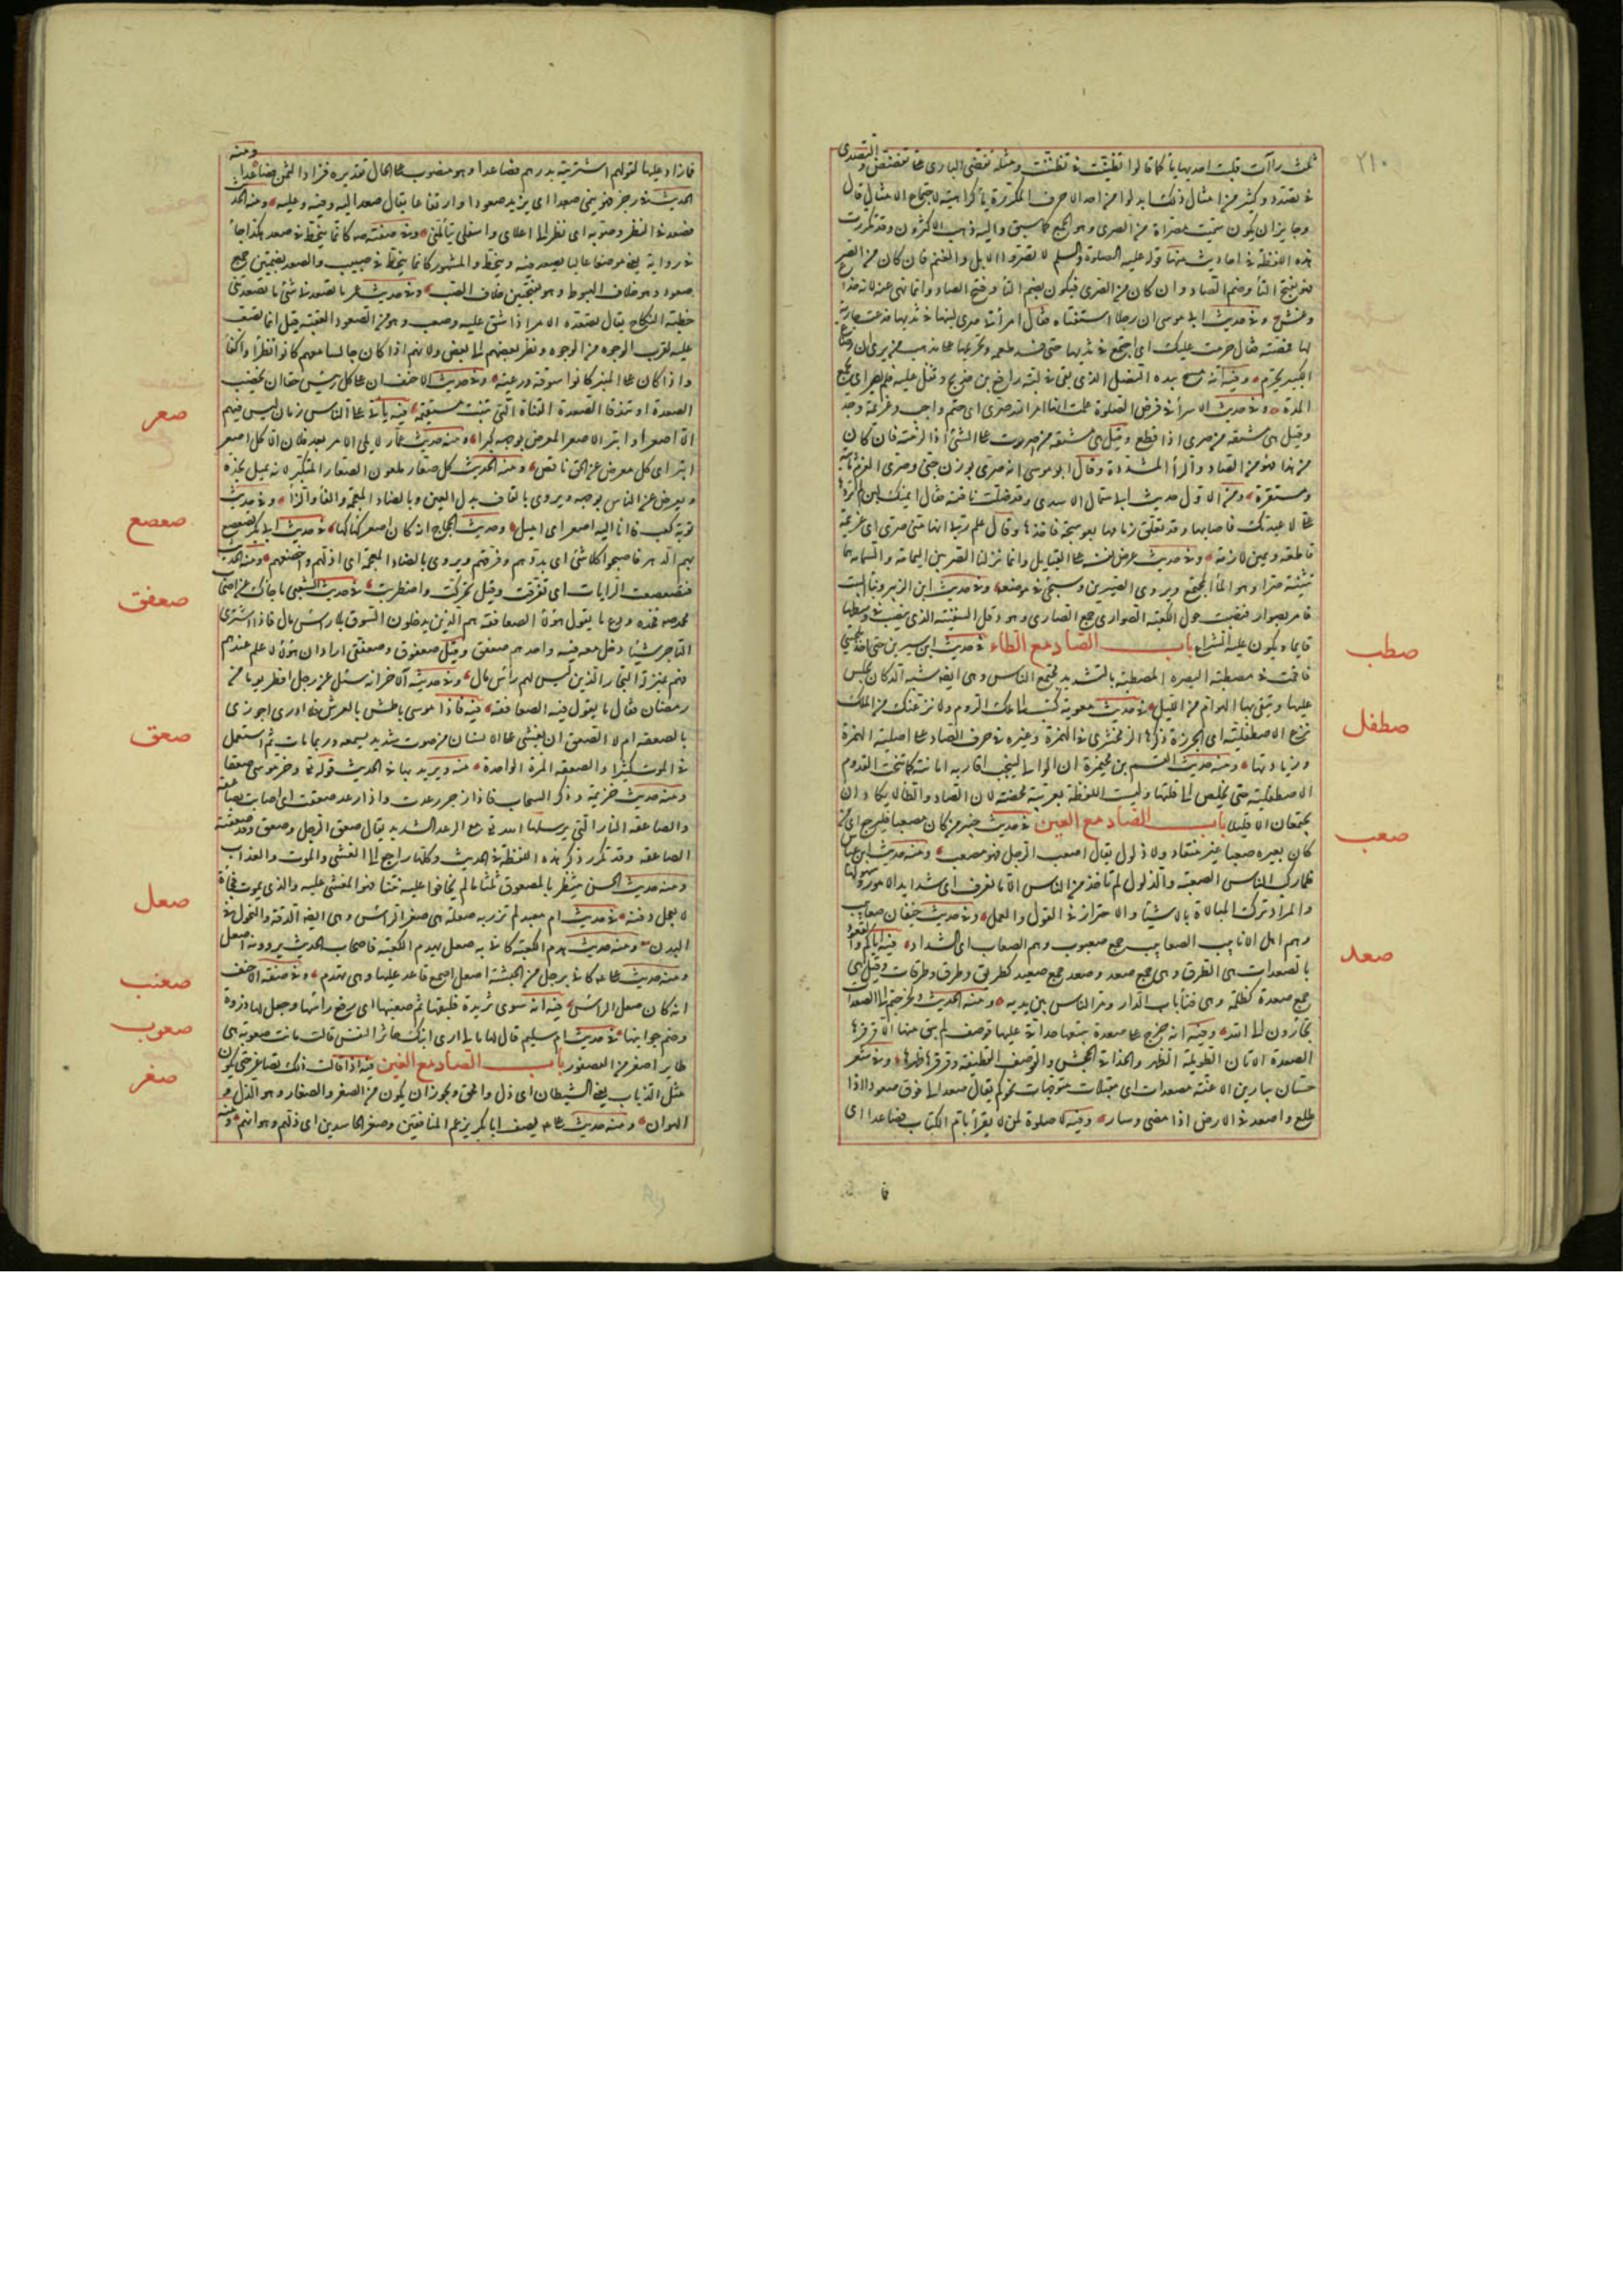 ٢١٠
ثلث راآت قلبت احديها ياء كما قالوا تظنيت في تظننت ومثله تقضى البازى في تقضض والتصدى
في تصدد وكثير من امثال ذلك ابدلوا من احد الاحرف المكررة ياء كراهية لاجتماع الامثال قال
وجايز ان يكون سميت مصراة من الصرى وهو الجمع كما سبق واليه ذهب الاكثرون وقد تكررت
هذه اللفظة في احاديث منها قوله عليه الصلوة والسلم لا تصروا الابل والغنم فان كان من الصر
فهو بفتح التاء وضم الصاد وان كان من الصرى فيكون بضم التاء وفتح الصاد وانما نهى عنه لانه خداع
وغش وفي حديث ابى موسى ان رجلا استفتاه فقال امرأتى صرى لبنها في ثديها فدعت جارية
لها فمصته فقال حرمت عليك اى اجتمع في ثديها حتى فسد طعمه وتحريمها على مذهب من يرى ان رضاع
الكبير يحرم وفيه انه مسح بيده النصل الذى بقى في لبة رافع بن خديج وتفل عليه فلم يصر اى يجمع
المدة وفي حديث الاسراء في فرض الصلوة علمت انها امر الله صرى اى حتم واجب وعزيمة وجد
وقيل هى مشتقة من صرى اذا قطع وقيل هى مشتقة من اصررت على الشئ اذا لزمته فان كان
من هذا فهو من الصاد والراء المشددة وقال ابو موسى انه صرى بوزن جنى وصرى العزم ثابتة
ومستقرة ومن الاول حديث ابى سمال الاسدى وقد ضلت ناقته فقال ايمنك لئن لم تردها
على لا عبدتك فاصابها وقد تعلق زمامها بعوسجة فاخذها وقال علم ربى انها منى صرى اى عزيمة
قاطعة ويمين لازمة وفي حديث عرض نفسه على القبايل وانما نزلنا الصريين اليمامة والسمامة هما
تثنية صرى وهو الماء المجتمع ويروى الصيرين وسيجئ في موضعه وفي حديث ابن الزبير وبناء البيت
فامر بصوار فنصبت حول الكعبة الصوارى جمع الصارى وهو دقل السفينة الذى ينصب في وسطها
قايما ويكون عليه الشراع باب الصاد مع الطاء في حديث ابن سيرين حتى اخذ بلحيتى
فاقمت في مصطبة البصرة المصطبة بالتشديد مجتمع الناس وهى ايضا شبه الدكان يجلس
عليها ويتقى بها الهوام من الليل في حديث معوية كتب الى ملك الروم ولانزعنك من الملك
نزع الاصطفلينة اى الجزرة ذكرها الزمخشرى في الهمزة وغيره في حرف الصاد على اصلية الهمزة
وزيادتها ومنه حديث القسم بن مخيمرة ان الوالى لينحت اقاربه امانته كما تنحت القدوم
الاصطفلينة حتى يخلص الى قلبها وليست اللفظة بعربية محضة لان الصاد والطاء لا يكادان
يجتمعان الا قليلا باب الصاد مع العين في حديث خيبر من كان مصعبا فليرجع اى من
كان بعيره صعبا غير منقاد ولا ذلول يقال اصعب الرجل فهو مصعب ومنه حديث ابن عباس
فلما ركب الناس الصعبة والذلول لم ناخذ من الناس الا ما نعرف اى شدايد الامور وسهولها
والمراد ترك المبالاة بالاشياء والاحتراز في القول والعمل وفي حديث خيفان صعابيب
وهم اهل الانابيب الصعابيب جمع صعبوب وهم الصعاب اى الشداد فيه اياكم والقعود
بالصعدات هى الطرق وهى جمع صعد وصعد جمع صعيد كطريق وطرق وطرقات وقيل هى
جمع صعدة كظلمة وهى فناء باب الدار وممر الناس بين يديه ومنه الحديث ولخرجتم الى الصعدات
تجأرون الى الله وفيه انه خرج على صعدة يتبعها حذاقى عليها قوصف لم يبق منها الا قرقرها
الصعدة الاتان الطويلة الظهر والحذاقى الجحش والقوصف القطيفة وقرقرها ظهرها وفي شعر
حسان يبارين الاعنة مصعدات اى مقبلات متوجهات نحوكم يقال صعد الى فوق صعودا اذا
طلع واصعد في الارض اذا مضى وسار وفيه لا صلوة لمن لا يقرأ بام الكتاب فصاعدا اى
فا
صطب
صطفل
صعب
صعد
فازاد عليها كقولهم اشتريته بدرهم فصاعدا وهو منصوب على الحال تقديره فزاد الثمن صاعدا ومنه
الحديث في رجز فهو ينمى صعدا اى يزيد صعودا وارتفاعا يقال صعد اليه وفيه وعليه ومنه الحديث
فصعد في النظر وصوبه اى نظر الى اعلاى واسفلى يتأملنى وفي صفته صه كانما ينحط في صعد هكذا جاء
في رواية يعنى موضعا عاليا يصعد فيه وينحط والمشهور كانما ينحط في صبب والصعد بضمتين جمع
صعود وهو خلاف الهبوط وهو بفتحتين خلاف الصبب وفي حديث عمر ما تصعدنى شئ ما تصعدتنى
خطبة النكاح يقال تصعده الامر اذا شق عليه وصعب وهو من الصعود العقبة قيل انما تصعب
عليه لقرب الوجوه من الوجوه ونظر بعضهم الى بعض ولانهم اذا كان جالسا معهم كانوا نظراء واكفاء
واذا كان على المنبر كانوا سوقة ورعية وفي حديث الاحنف ان على كل رئيس حقا ان يخضب
الصعدة او تندقا الصعدة القناة التى تنبت مستقيمة فيه يأتى على الناس زمان ليس فيهم
الا اصعر او ابتر الاصعر المعرض بوجهه كبرا ومنه حديث عمار لا يلى الامر بعد فلان الا كل اصعر
ابتر اى كل معرض عن الحق ناقص ومنه الحديث كل صعار ملعون الصعار المتكبر لانه يميل بخده
ويعرض عن الناس بوجهه ويروى بالقاف بدل العين وبالضاد المعجمة والفاء والزاء وفي حديث
توبة كعب فانا اليه اصعر اى اميل وحديث الحجاج انه كان اصعر كهاكها في حديث ابى بكر تصعصع
بهم الدهر فاصبحوا كلا شئ اى بددهم وفرقهم ويروى بالضاد المعجمة اى اذلهم واخضعهم ومنه الحديث
فتصعصعت الرايات اى تفرقت وقيل تحركت واضطربت في حديث الشعبى ما جاءك عن اصحاب
محمد صه فخذه ودع ما يقول هؤلاء الصعافقة هم الذين يدخلون السوق بلا رأس مال فاذا اشترى
التاجر شيئا دخل معه فيه واحدهم صعفق وقيل صعفوق وصعفقى اراد ان هؤلاء لا علم عندهم
فهم بمنزلة التجار الذين ليس لهم رأس مال وفي حديثه الآخر انه سئل عن رجل افطر يوما من
رمضان فقال ما يقول فيه الصعافقة فيه فاذا موسى باطش بالعرش فلا ادرى اجوزى
بالصعقة ام لا الصعق ان يغشى على الانسان من صوت شديد يسمعه وربما مات ثم استعمل
في الموت كثيرا والصعقة المرة الواحدة منه ويريد بها في الحديث قوله تع وخر موسى صعقا
ومنه حديث خزيمة وذكر السحاب فاذا زجر رعدت واذا رعد صعقت اى اصابت بصاعقة
والصاعقة النار التى يرسلها الله تع مع الرعد الشديد يقال صعق الرجل وصعق وقد صعقته
الصاعقة وقد تكرر ذكر هذه اللفظة في الحديث وكلها راجع الى الغشى والموت والعذاب
ومنه حديث الحسن ينتظر بالمصعوق ثلثا ما لم يخافوا عليه نتنا هو المغشى عليه والذى يموت فجأة
لا يعجل دفنه في حديث ام معبد لم تزر به صعلة هى صغر الرأس وهى ايضا الدقة والنحول في
البدن ومنه حديث هدم الكعبة كانى به صعل يهدم الكعبة فاصحاب الحديث يروونه اصعل
ومنه حديث على كانى برجل من الحبشة اصعل اصمع قاعد عليها وهى تهدم وفي صفة الاحنف
انه كان صعل الرأس فيه انه سوى ثريدة فلبقها ثم صعنبها اى رفع رأسها وجعل لها ذروة
وضم جوانبها في حديث ام سليم قال لها ما لى ارى ابنك خاثر النفس قالت ماتت صعوته هى
طاير اصغر من العصفور باب الصاد مع الغين فيه اذا قلت ذلك تصاغر حتى يكون
مثل الذباب يعنى الشيطان اى ذل وامحق ويجوز ان يكون من الصغر والصغار وهو الذل و
الهوان ومنه حديث على يصف ابا بكر برغم المنافقين وصغر الحاسدين اى ذلهم وهوانهم ومنه
صعر
صعصع
صعفق
صعق
صعل
صعنب
صعوب
صغر